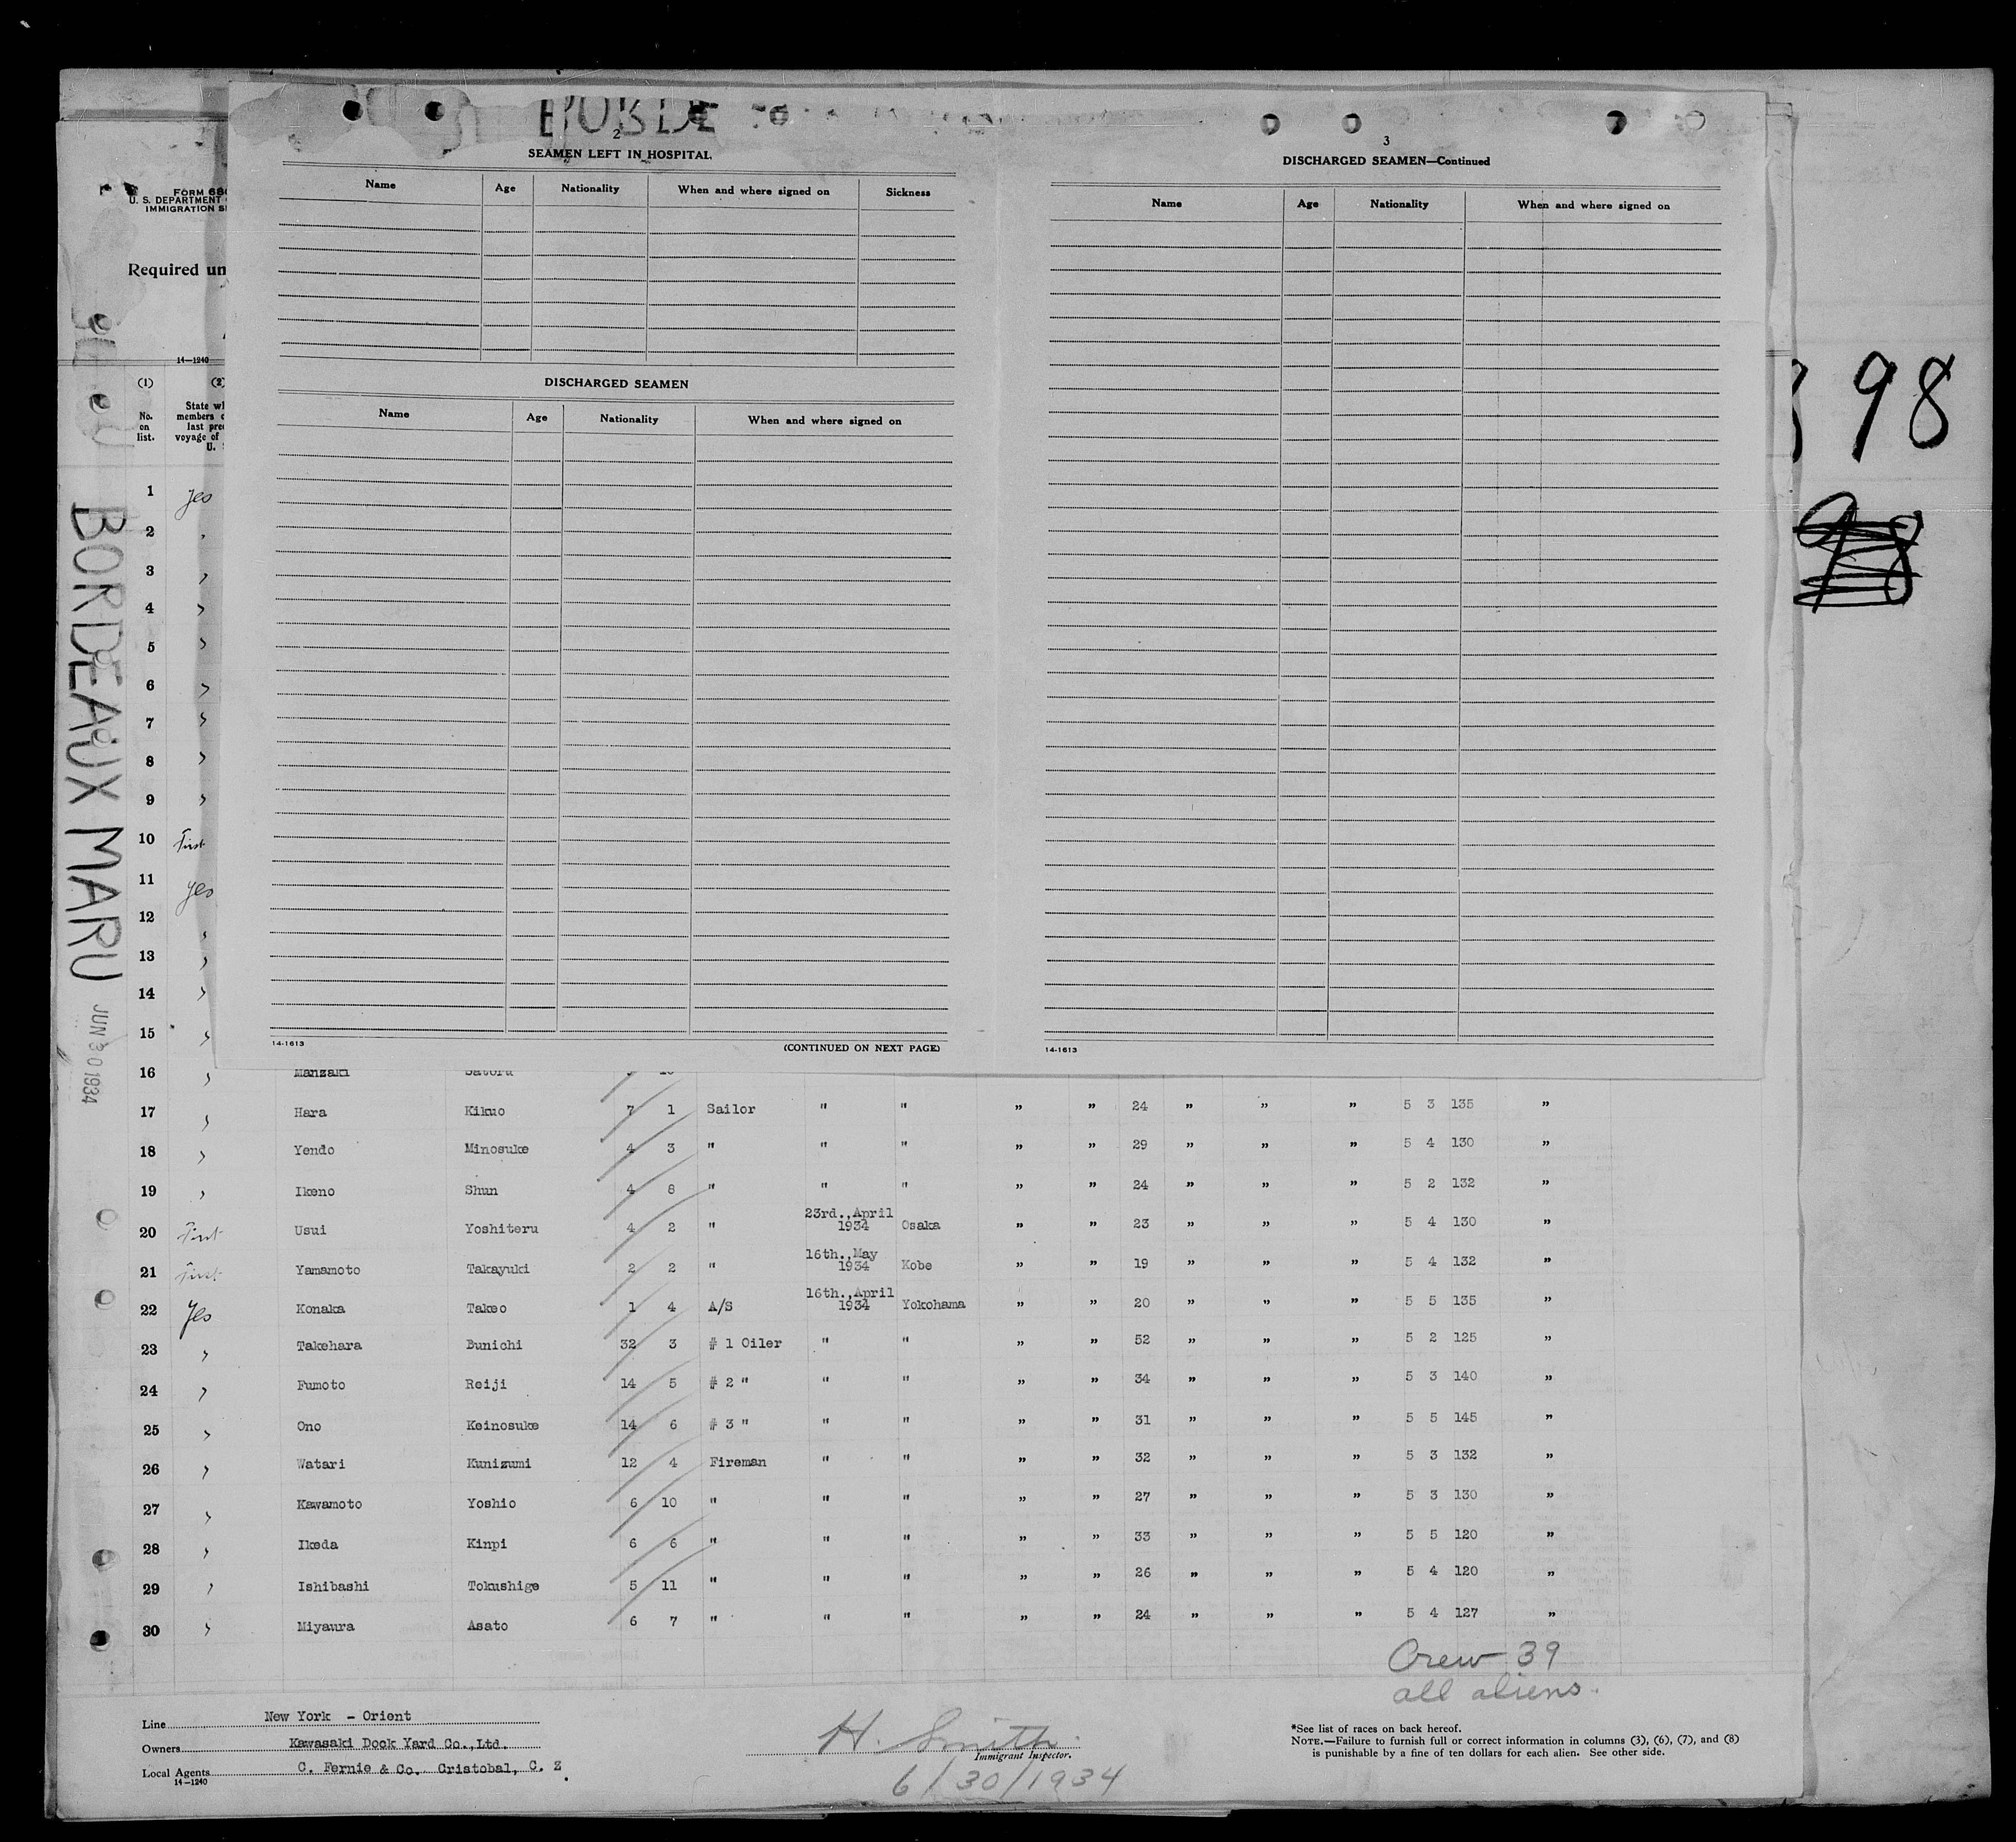 2
SEAMEN LEFT IN HOSPITAL
Name Age Nationality When and where signed on Sickness
DISCHARGED SEAMEN
Name Age Nationality When and where signed on
14-1613 (CONTINUED ON NEXT PAGE)
3
DISCHARGED SEAMEN—Continued
Name Age Nationality When and where signed on
14-1613
98
FORM 68
U. S. DEPARTMENT
IMMIGRATION S
Required un
14—1240
(1) (2)
No. on list.
State wh
members o
last pre
voyage of
U. S
BORDEAUX MARU
JUN 30 1934
1 yes
2 "
3 "
4 "
5 "
6 "
7 "
8 "
9 "
10 First
11 yes
12 "
13 "
14 "
15 "
16 " Manzaki Satoru
17 " Hara Kikuo 7 1 Sailor " " " " 24 " " " 5 3 135 "
18 " Yendo Minosuke 4 3 " " " " " 29 " " " 5 4 130 "
19 " Ikeno Shun 4 8 " " " " " 24 " " " 5 2 132 "
20 First Usui Yoshiteru 4 2 " 23rd.,April 1934 Osaka " " 23 " " " 5 4 130 "
21 First Yamamoto Takayuki 2 2 " 16th.,May 1934 Kobe " " 19 " " " 5 4 132 "
22 Yes Konaka Takeo 1 4 A/S 16th.,April 1934 Yokohama " " 20 " " " 5 5 135 "
23 " Takehara Bunichi 32 3 # 1 Oiler " " " " 52 " " " 5 2 125 "
24 " Fumoto Reiji 14 5 # 2 " " " " " 34 " " " 5 3 140 "
25 " Ono Keinosuke 14 6 # 3 " " " " " 31 " " " 5 5 145 "
26 " Watari Kunizumi 12 4 Fireman " " " " 32 " " " 5 3 132 "
27 " Kawamoto Yoshio 6 10 " " " " " 27 " " " 5 3 130 "
28 " Ikeda Kinpi 6 6 " " " " " 33 " " " 5 5 120 "
29 " Ishibashi Tokushige 5 11 " " " " " 26 " " " 5 4 120 "
30 " Miyaura Asato 6 7 " " " " " 24 " " " 5 4 127 "
Crew 39
all aliens.
Line New York - Orient
Owners Kawasaki Dock Yard Co.,Ltd.
Local Agents C. Fernie & Co. Cristobal, C. Z
14—1240
H. Smith
Immigrant Inspector.
6/30/1934
*See list of races on back hereof.
NOTE.—Failure to furnish full or correct information in columns (3), (6), (7), and (8)
is punishable by a fine of ten dollars for each alien. See other side.